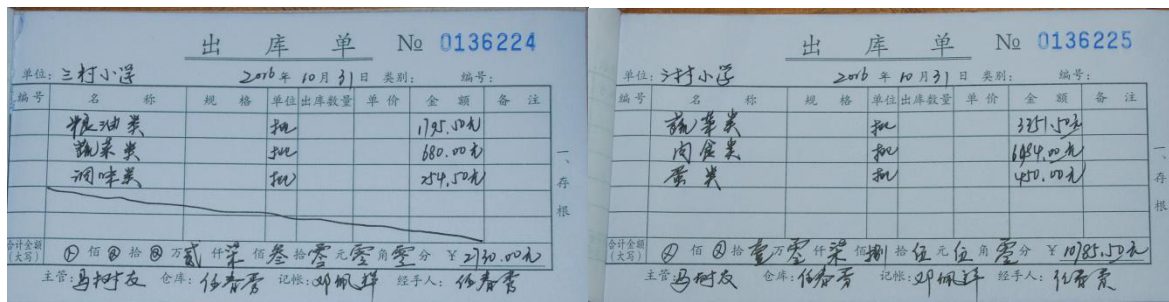 出库单 № 0136224
单位: 三村小学 2016年10月31日 类别: 编号:
编号 名称 规格 单位 出库数量 单价 金额 备注
粮油类 批 1795.50元
蔬菜类 批 680.00元
调味类 批 254.50元
合计金额(大写) ⊗佰⊗拾⊗万贰仟柒佰叁拾零元零角零分 ¥2730.00元
主管:马树友 仓库: 记帐: 经手人:
一、存根
出库单 № 0136225
单位: 三村小学 2016年10月31日 类别: 编号:
编号 名称 规格 单位 出库数量 单价 金额 备注
蔬菜类 批
肉食类 批
蛋类 批 450.00元
合计金额(大写) ⊗佰⊗拾壹万零仟柒佰捌拾伍元伍角零分 ¥10785.50元
主管:马树友 仓库: 记帐: 经手人:
一、存根